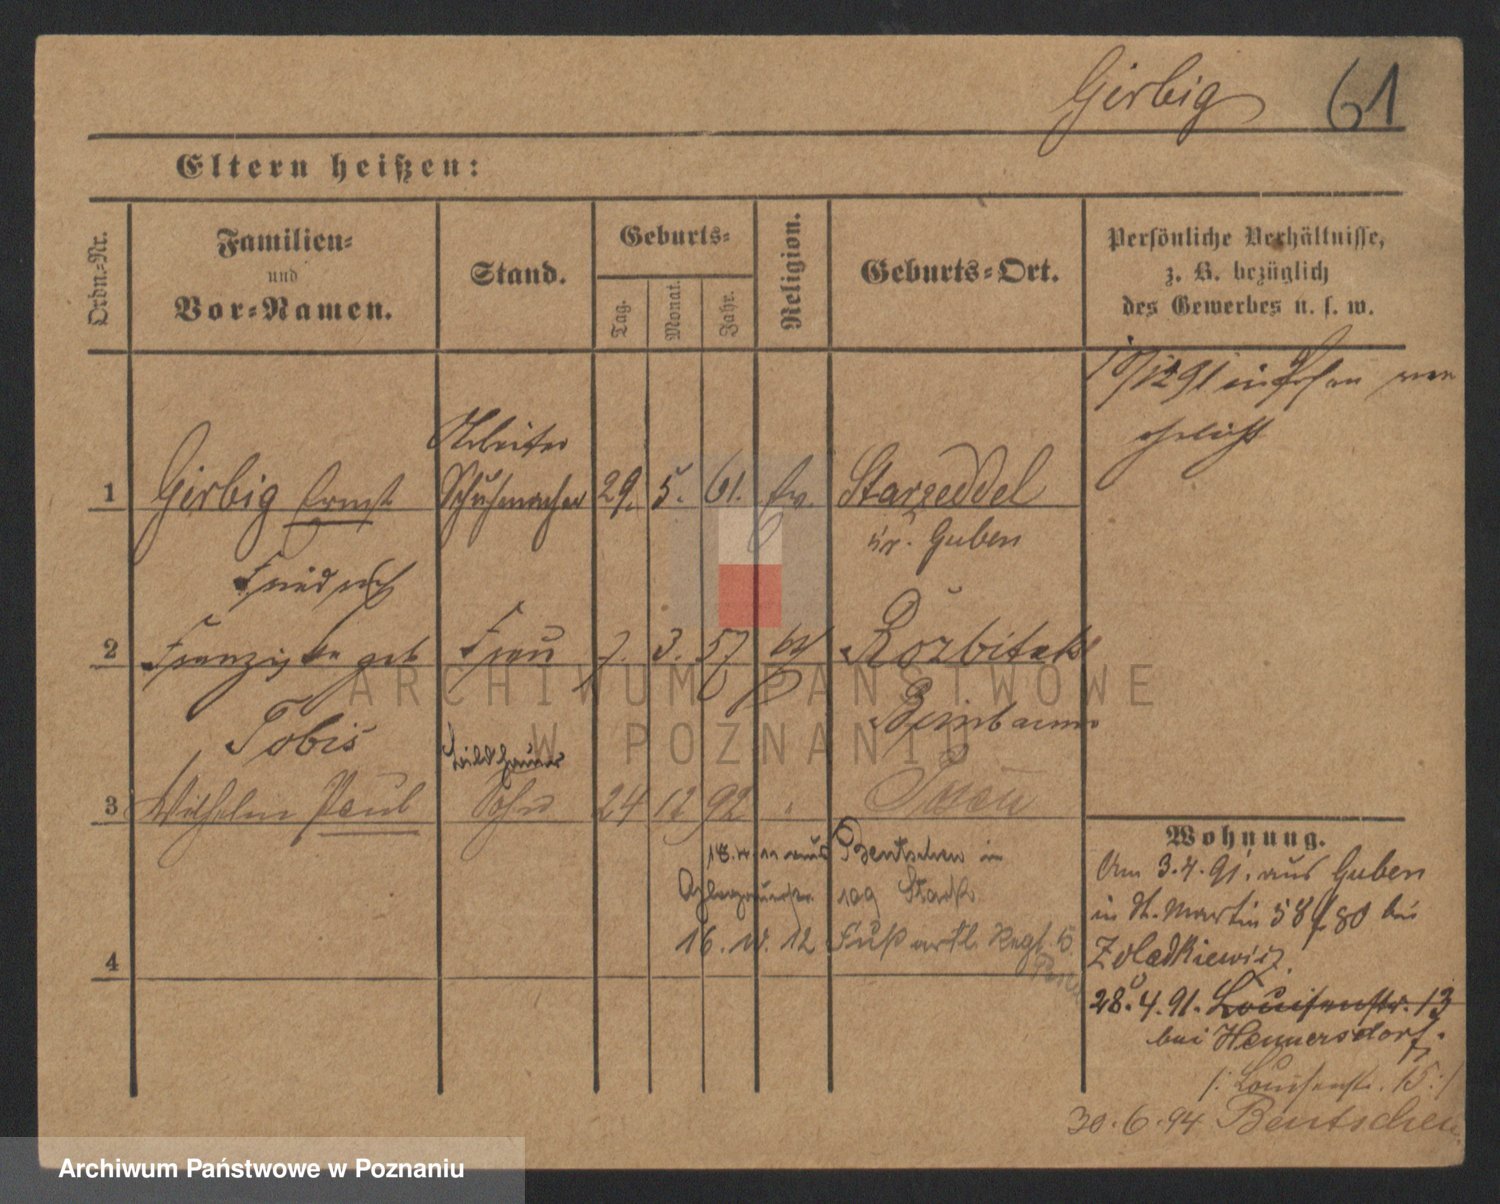 Girbig 61
Eltern heißen:
Ordn.-Nr.
Familien-
und
Vor-Namen.
Stand.
Geburts-
Tag.
Monat.
Jahr.
Religion.
Geburts-Ort.
Persönliche Verhältnisse,
z. B. bezüglich
des Gewerbes u. s. w.
in Posen ver
ehelicht
Arbeiter
1 Girbig Ernst Schuhmacher 29. 5. 61. ev. Starzeddel
Kr. Guben
Friedrich
2 Franziska geb Frau 7. 3. 57 Rozbitek
Tobis Birnbaum
Bildhauer
3 Wilhelm Paul Sohn 24 12 92 Posen
aus Bentschen in
109 Stark
16. 12 Fuß artl. Regt. 5
Posen
4
Wohnung.
Am 3.4.91. aus Guben
in St. Martin 58 bei
28.4.91. Louisenstr. 13
bei Hennersdorf.
/: Louisenstr. 15 :/
30.6.94 Bentschen
ARCHIWUM PAŃSTWOWE
W POZNANIU
Archiwum Państwowe w Poznaniu